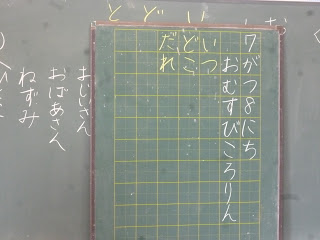 7がつ8にち
おむすびころりん
いつ
どこ
だれ
おじいさん
おばあさん
ねずみ